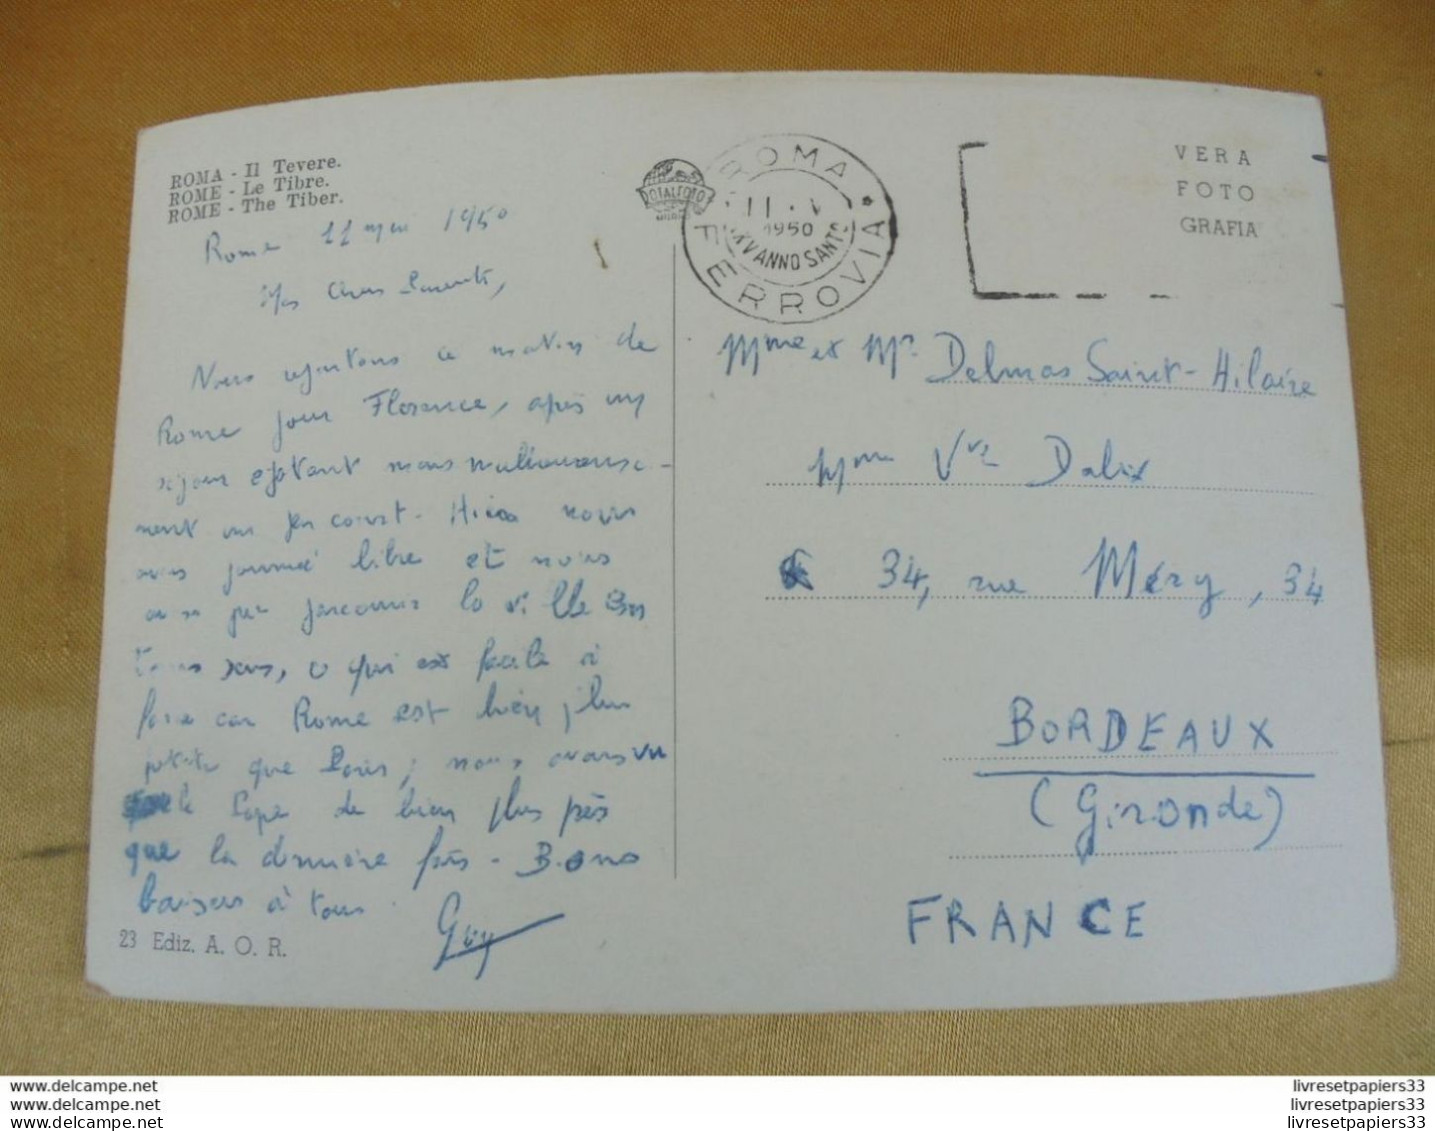 ROMA - Il Tevere.
ROME - Le Tibre.
ROME - The Tiber.
Rome 11 mai 1950
Mes Chers Parents,
Nous repartons ce matin de
Rome pour Florence, après un
séjour épatant mais malheureuse-
ment un peu court. Hier nous
avons journée libre et nous
avons pu parcourir la ville en
tous sens, ce qui est facile à
faire car Rome est bien plus
petite que Paris; nous avons vu
le Pape de bien plus près
que la dernière fois - Bons
baisers à tous.
Guy
23 Ediz. A. O. R.
ROTALFOTO
ROMA FERROVIA
11 · V
1950
XXV ANNO SANTO
VERA
FOTO
GRAFIA
Mme et Mr Delmas Saint-Hilaire
Mme Vve Dalix
34, rue Méry, 34
BORDEAUX
(Gironde)
FRANCE
www.delcampe.net
www.delcampe.net
www.delcampe.net
livresetpapiers33
livresetpapiers33
livresetpapiers33